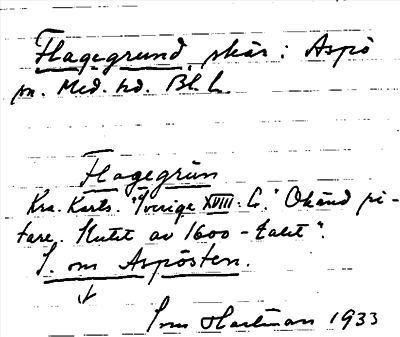 Flagegrund, skär i Aspö
sn. Med. hd. Bl. L.
Flagegrün
Kra. Karts. "Sverige XVIII: G." Okänd ri-
tare. Slutet av 1600-talet".
S. om Aspösten.
Hartman 1933